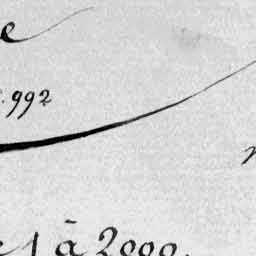 e
.992
1 à 2000.